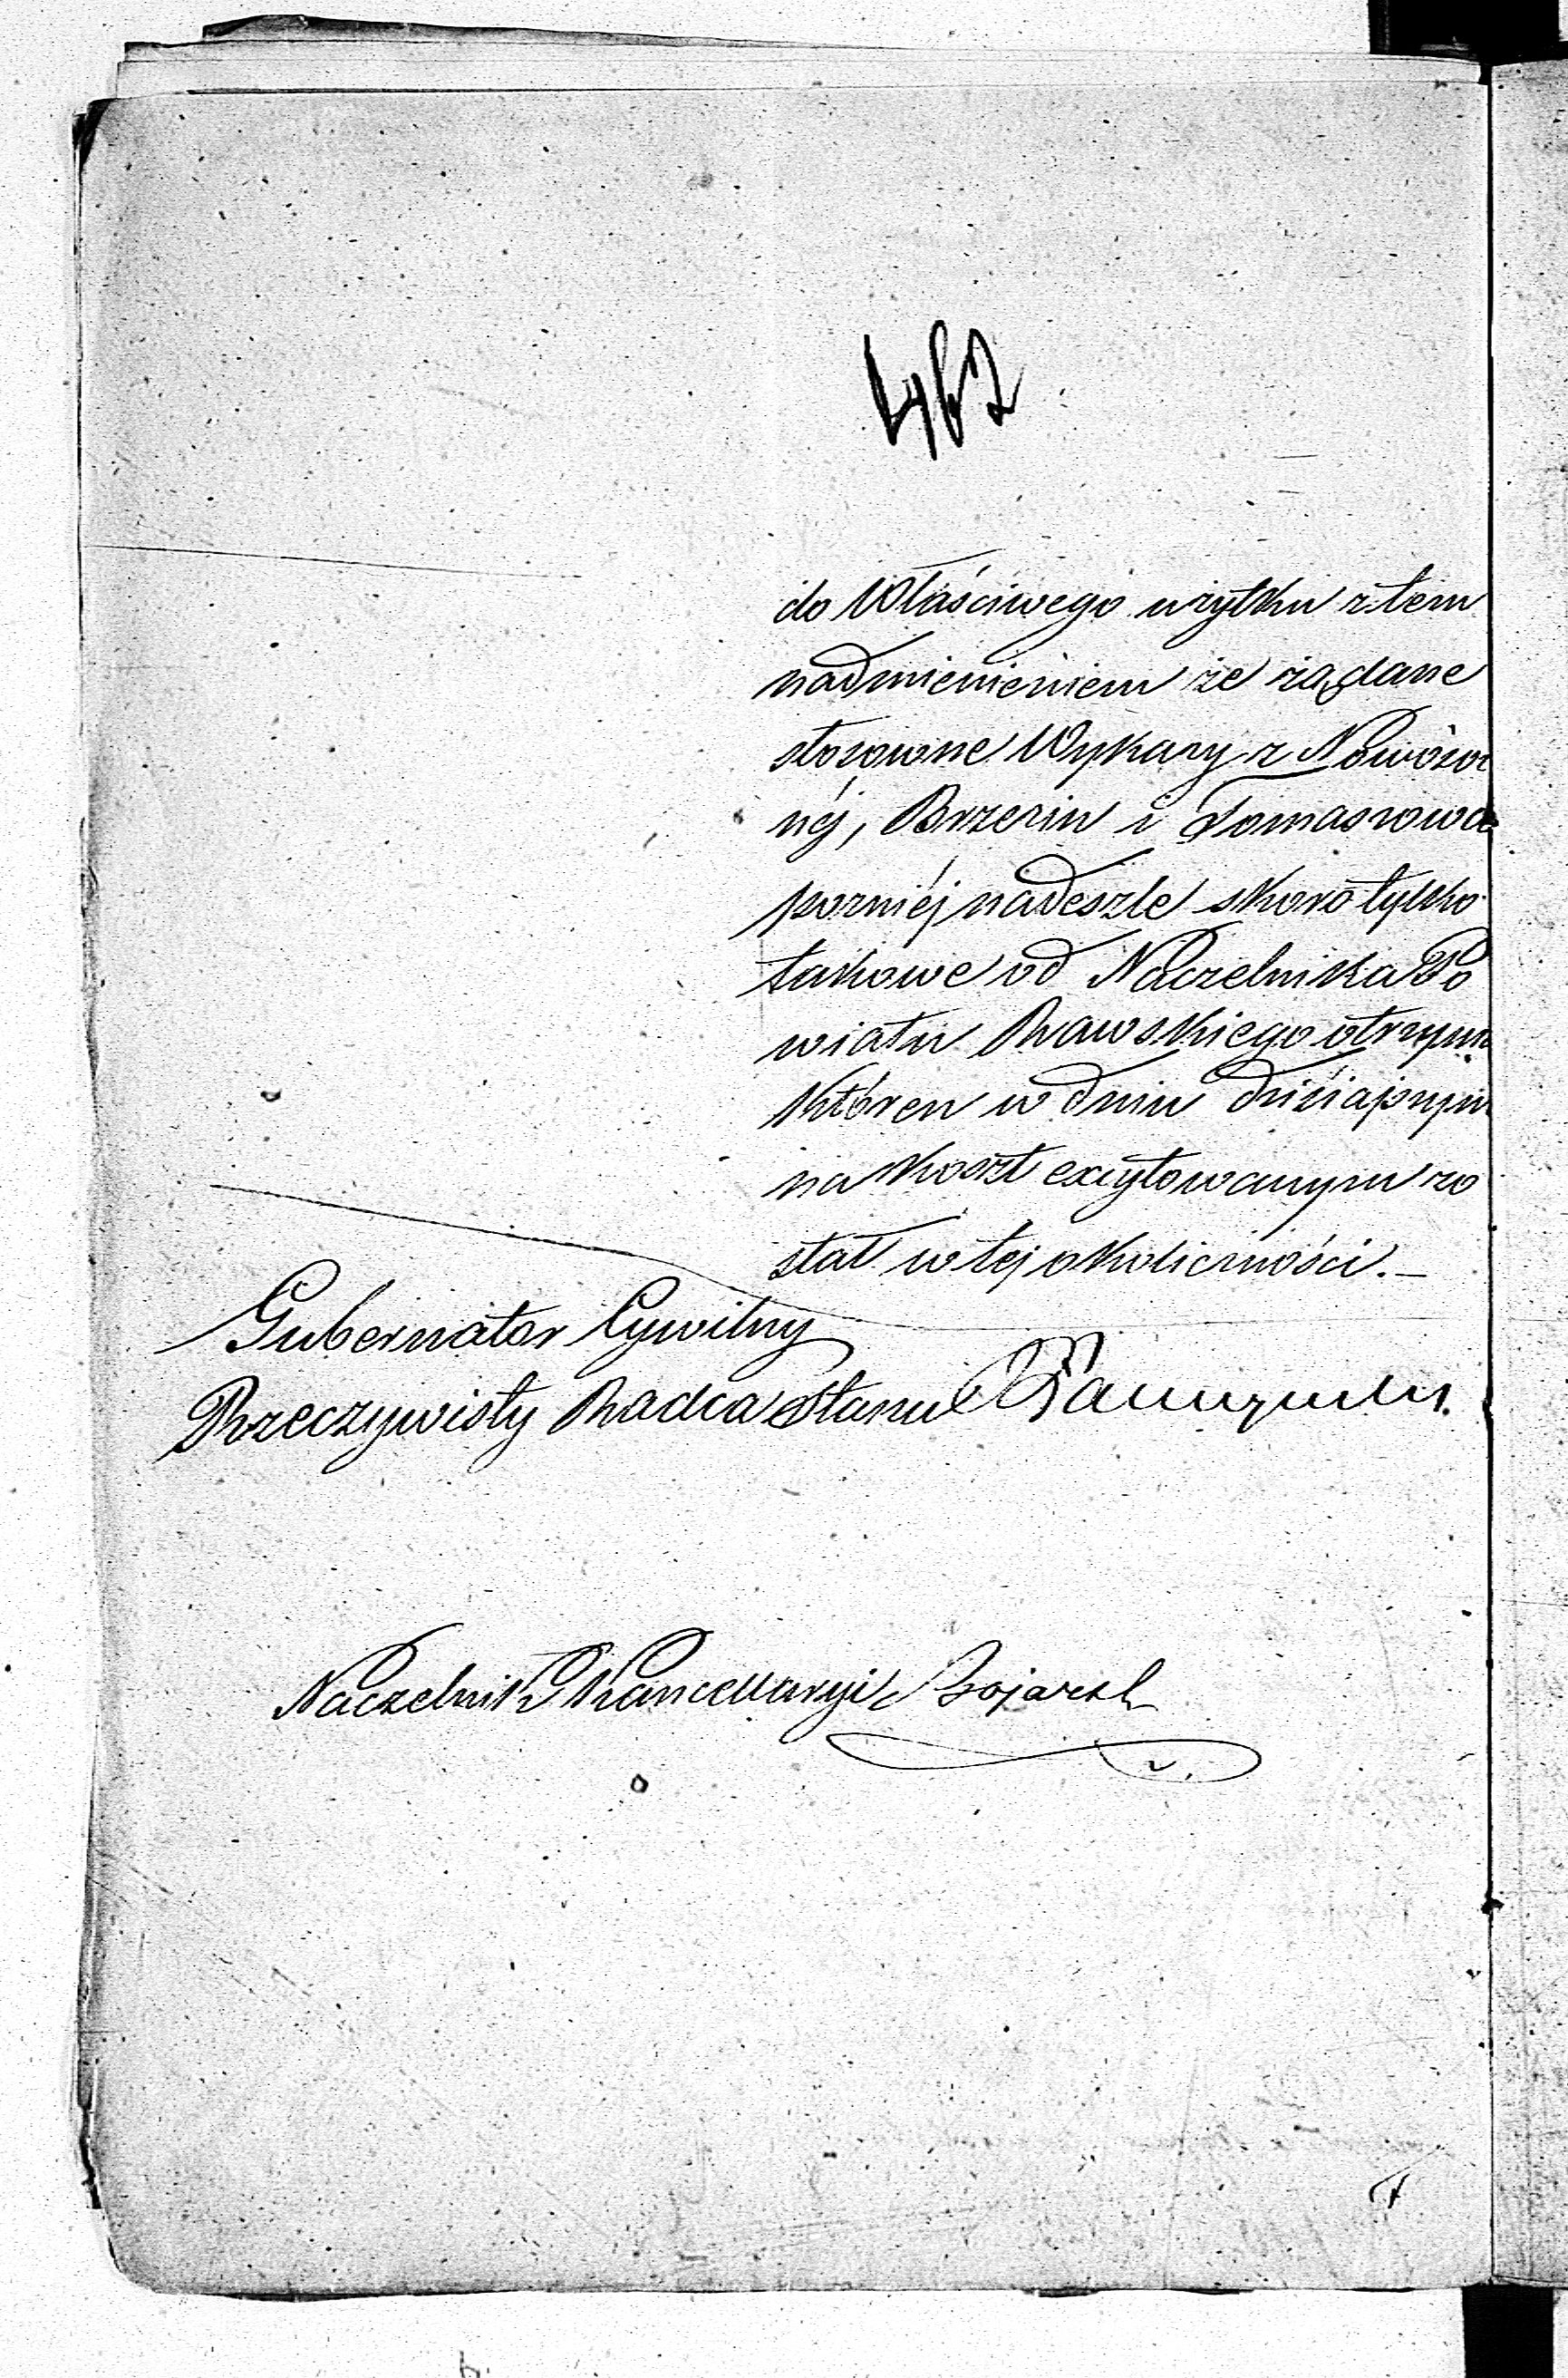 467
do Właściwego użytku z tem
nadmienieniem że żądane
stosowne Wykazy z
néj, Brzezin i Tomaszowa
pozniéj nadeszle skoro tylko
takowe od Naczelnika Po
wiatu Rawskiego otrzyma
któren w dniu dzisiajszym
na koszt excytowanym zo
stał w tej okoliczności. —
Gubernator Cywilny
Rzeczywisty Radca Stanu
Naczelnik Kancellaryi